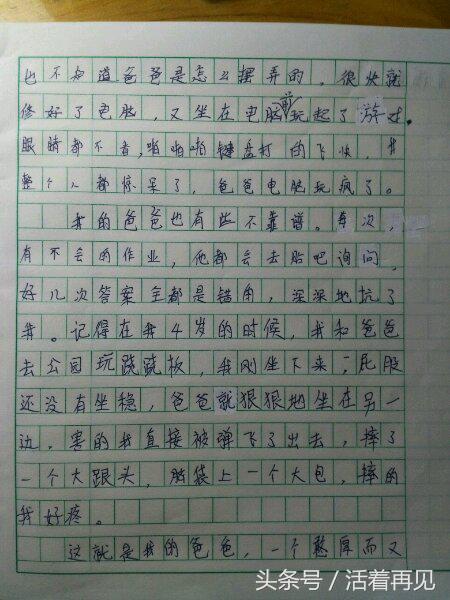 也不知道爸爸是怎么摆弄的，很快就
修好了电脑，又坐在电脑前玩起了游戏。
眼睛都不眨，啪啪啪键盘打的飞快，我
整个人都惊呆了，爸爸电脑玩疯了。
我的爸爸也有些不靠谱。每次，
有不会的作业，他都会去贴吧询问，
好几次答案全都是错的，深深地坑了
我。记得在我4岁的时候，我和爸爸
去公园玩跷跷板，我刚坐下来，屁股
还没有坐稳，爸爸就狠狠地坐在另一
边，害的我直接被弹飞了出去，摔了
一个大跟头，脑袋上一个大包，摔的
我好疼。
这就是我的爸爸，一个憨厚而又
头条号／活着再见